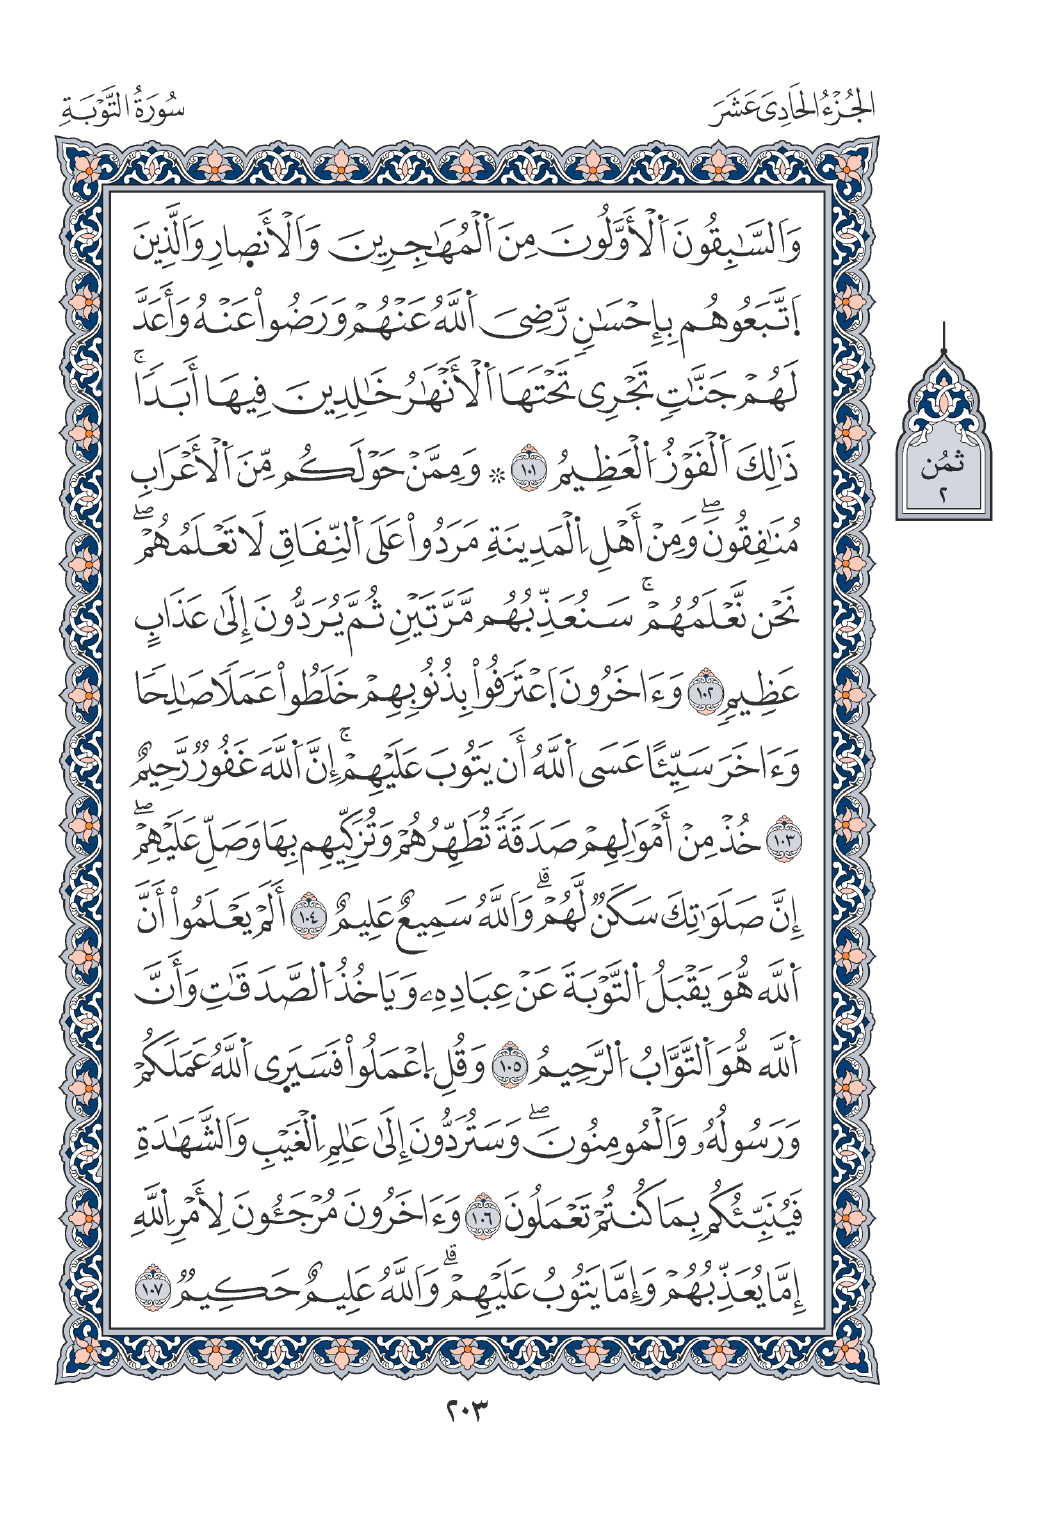 الجُزْءُ الحَادِىَ عَشَرَ
سُورَةُ التَّوْبَةِ
وَاَلسَّٰبِقُونَ اَ۬لْأَوَّلُونَ مِنَ اَ۬لْمُهَٰجِرِينَ وَالْأَنصِ۪ارِ وَالَّذِينَ
اَ۪تَّبَعُوهُم بِإِحْسَٰنٖ رَّضِىَ اَ۬للَّهُ عَنْهُمْ وَرَضُواْ عَنْهُ وَأَعَدَّ
لَهُمْ جَنَّٰتٖ تَجْرِى تَحْتَهَا اَ۬لْأَنْهَٰرُ خَٰلِدِينَ فِيهَا أَبَداٗۚ
ذَٰلِكَ اَ۬لْفَوْزُ اُ۬لْعَظِيمُ ١٠١ ۞ وَمِمَّنْ حَوْلَكُم مِّنَ اَ۬لْأَعْرَابِ
مُنَٰفِقُونَۖ وَمِنْ أَهْلِ اِ۬لْمَدِينَةِ مَرَدُواْ عَلَى اَ۬لنِّفَاقِ لَا تَعْلَمُهُمْۖ
نَحْن نَّعْلَمُهُمْۚ سَنُعَذِّبُهُم مَّرَّتَيْنِ ثُمَّ يُرَدُّونَ إِلَىٰ عَذَابٍ
عَظِيمٖ ١٠٢ وَءَاخَرُونَ اَ۪عْتَرَفُواْ بِذُنُوبِهِمْ خَلَطُواْ عَمَلاٗ صَٰلِحاٗ
وَءَاخَرَ سَيِّئاً عَسَى اَ۬للَّهُ أَن يَتُوبَ عَلَيْهِمْۚ إِنَّ اَ۬للَّهَ غَفُورٞ رَّحِيمٌ
١٠٣ خُذْ مِنْ أَمْوَٰلِهِمْ صَدَقَةٗ تُطَهِّرُهُمْ وَتُزَكِّيهِم بِهَا وَصَلِّ عَلَيْهِمْۖ
إِنَّ صَلَوَٰتِكَ سَكَنٞ لَّهُمْۗ وَاَللَّهُ سَمِيعٌ عَلِيمٌ ١٠٤ أَلَمْ يَعْلَمُواْ أَنَّ
اَ۬للَّه هُّوَ يَقْبَلُ اُ۬لتَّوْبَةَ عَنْ عِبَادِهِۦ وَيَاخُذُ اُ۬لصَّدَقَٰتِ وَأَنَّ
اَ۬للَّه هُّوَ اَ۬لتَّوَّابُ اُ۬لرَّحِيمُ ١٠٥ وَقُلِ اِ۪عْمَلُواْ فَسَيَرَى اَ۬للَّهُ عَمَلَكُمْ
وَرَسُولُهُۥ وَاَلْمُومِنُونَۖ وَسَتُرَدُّونَ إِلَىٰ عَٰلِمِ اِ۬لْغَيْبِ وَاَلشَّهَٰدَةِ
فَيُنَبِّئُكُم بِمَا كُنتُمْ تَعْمَلُونَ ١٠٦ وَءَاخَرُونَ مُرْجَـُٔونَ لِأَمْرِ اِ۬للَّهِ
إِمَّا يُعَذِّبُهُمْ وَإِمَّا يَتُوبُ عَلَيْهِمْۗ وَاَللَّهُ عَلِيمٌ حَكِيمٞ ١٠٧
ثُمُن
٢
٢٠٣